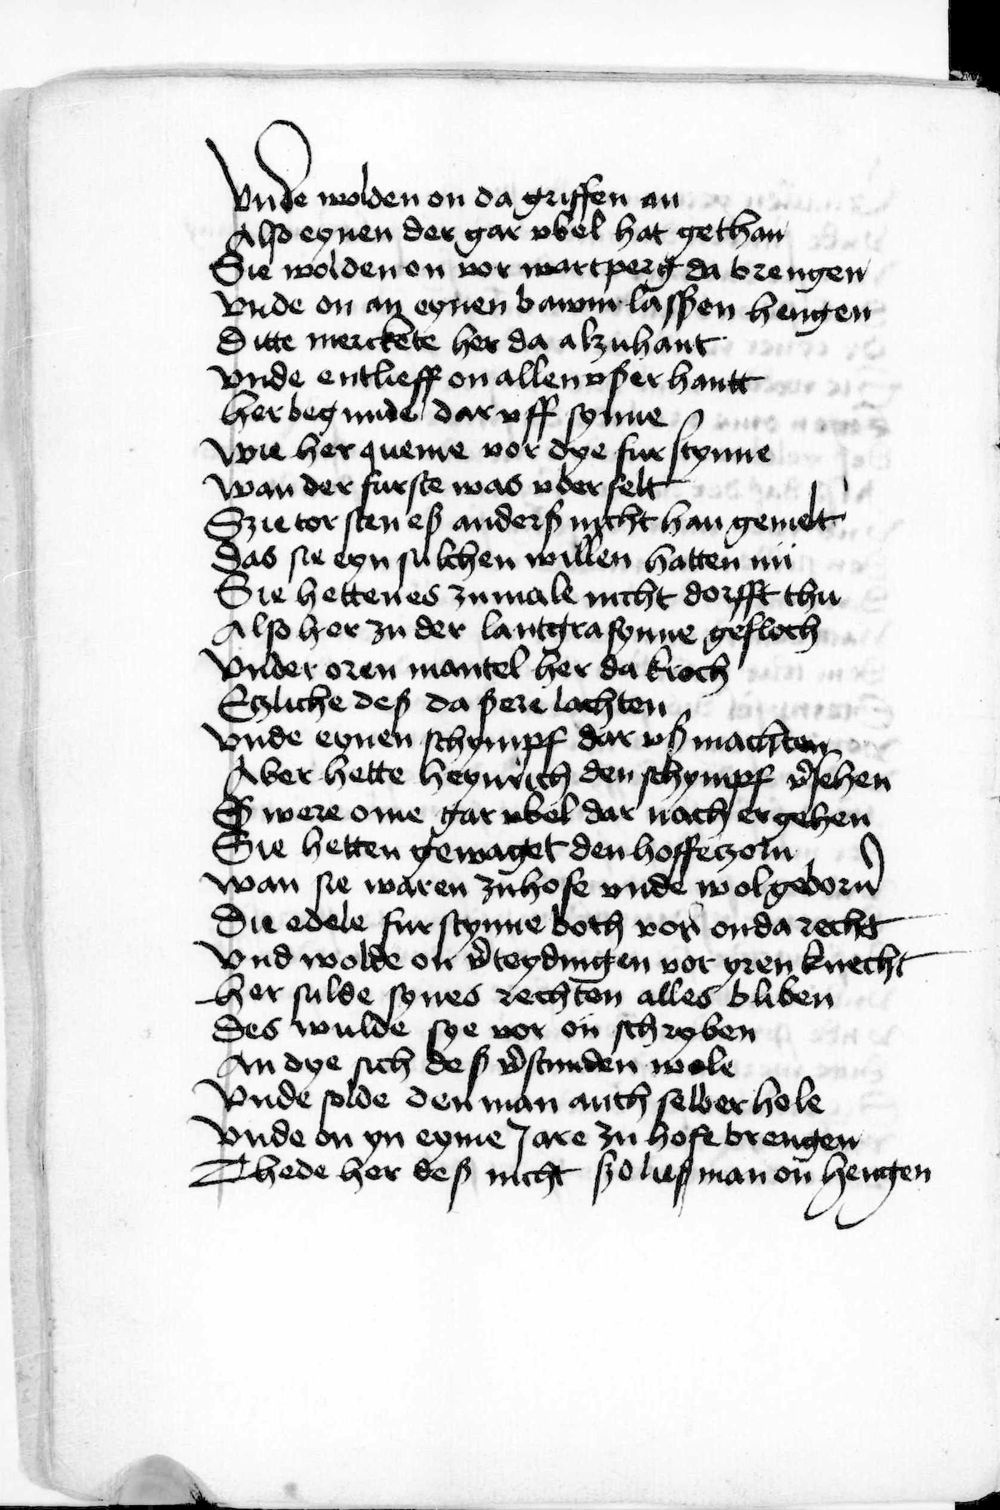 Vnde wolden on da griffen an
Also eynen der gar vbel hat gethan
Sie wolden on vor wartperg da brengen
Vnde on an eynen bawm lasßen hengen
Ditte merckete her da alzuhant
Vnde entlieff on allen vßer hantt
her begunde dar vff synne
Wie her queme vor dye furstynne
Wan der furste was vberfelt
Szie torsten eß anderß nicht han gemelt
Das sie eyn sulchen willen hatten nů
Sie hetten es zumale nicht dorfft thu
Also her zu der lantgrafynne gefloch
Vnder oren mantel her da kroch
Etzliche deß da ßere lachten
Vnde eynen schympf dar vß machten
Aber hette heynrich den schympf v̉sehen
Eß were ome gar vbel dar nach ergehen
Sie hetten gewaget den hoffeczorn
Wan sie waren zuhofe vnde wolgeborn̄
Die edele furstynne both vor on da recht
Vnd wolde on v̉teydingen vor yren knecht
her sulde synes rechten alles bliben
Des wulde sye vor on̄ schryben
An dye sich deß v̉stunden wole
Vnde solde den man auch selber hole
Vnde on yn eyme Jare zu hofe brengen
Thede her deß nicht ßo ließ man on̄ hengen